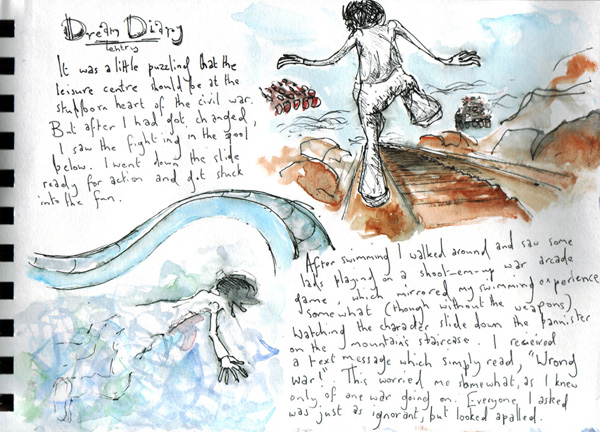 Dream Diary
1 entry
It was a little puzzling that the
leisure centre should be at the
stubborn heart of the civil war.
But after I had got changed,
I saw the fighting in the pool
below. I went down the slide
ready for action and got stuck
into the fun.
After swimming I walked around and saw some
lads playing on a shoot-em-up war arcade
game, which mirrored my swimming experience
somewhat (though without the weapons)
Watching the character slide down the bannister
on the mountain's staircase. I received
a text message which simply read, "Wrong
war!". This worried me somewhat, as I knew
only of one war going on. Everyone I asked
was just as ignorant, but looked apalled.